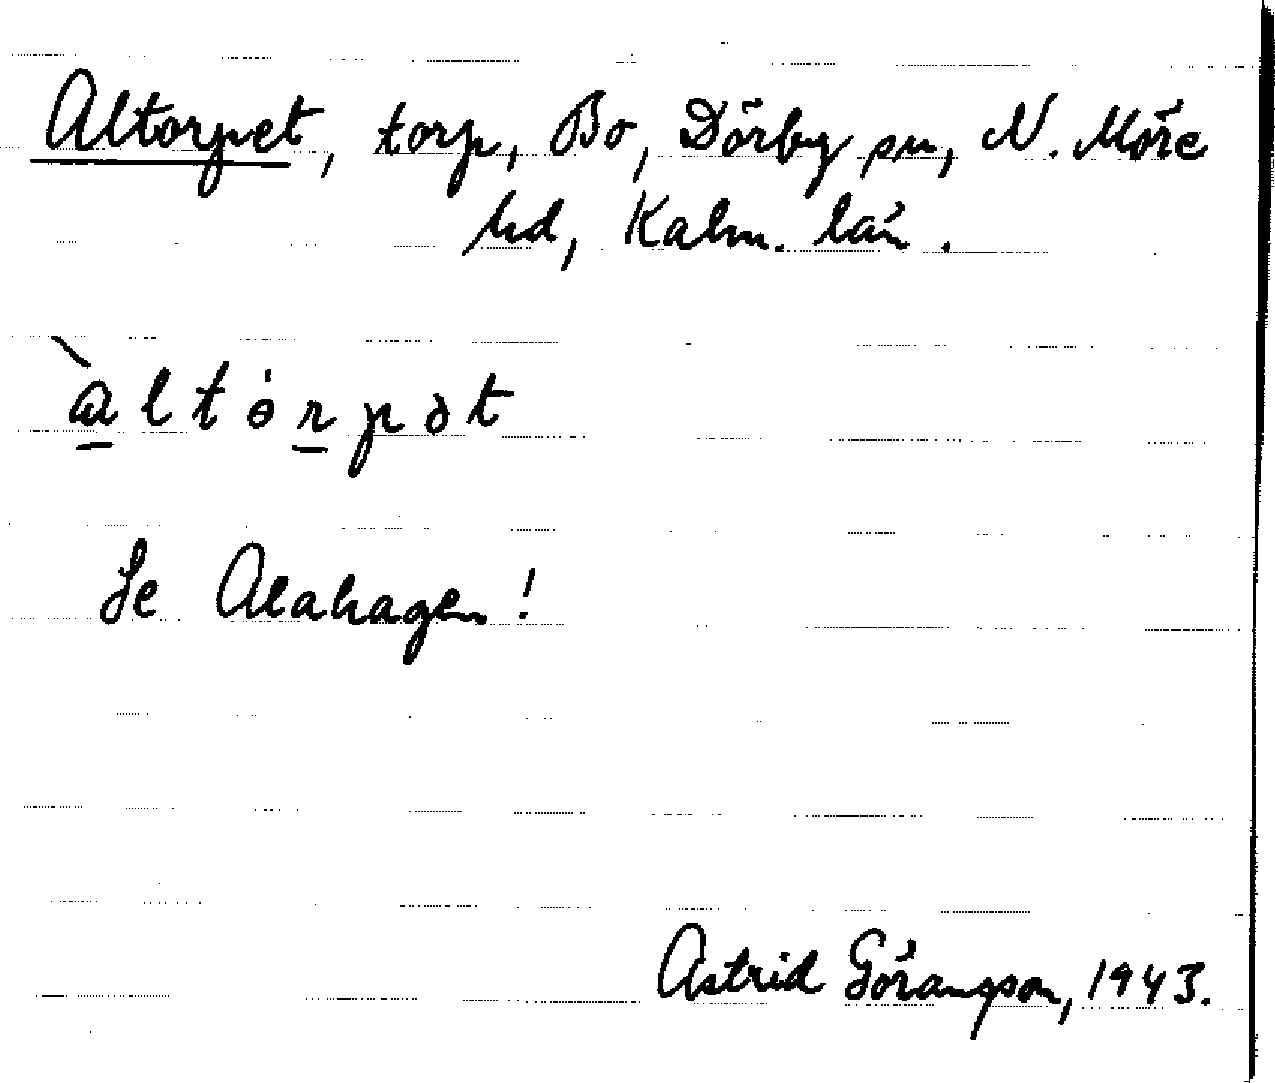 Altorpet, torp, Bo, Dörby sn, N. Möre
hd, Kalm. län.
àltórpət
Se Alahagen!
Astrid Göransson, 1943.